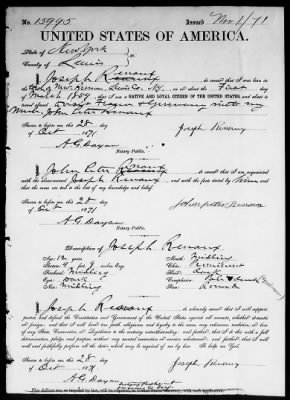 No. 15995 Issued Nov 1/71
UNITED STATES OF AMERICA.
State of New York
County of Lewis
I, Joseph Renaux do swear that I was born in
on or about the First day
of March 1859 that I am a NATIVE AND LOYAL CITIZEN OF THE UNITED STATES, and about
to travel abroad to France & Germany with my
Uncle John Peter Renaux
Sworn to before me this 28 day
of Oct 1871
Joseph Renaux
A G Dayan
Notary Public.
I, John Peter Renaux do swear that I am acquainted
with the above-named Joseph Renaux and with the facts stated by him and
that the same are true to the best of my knowledge and belief
Sworn to before me this 28 day
of Oct 1871
John peter Renaux
A G Dayan
Notary Public.
Description of Joseph Renaux
Age: 12 years
Stature: 4 feet inches, Eng.
Forehead: Middling
Eyes: Dark
Nose: Middling
Mouth: Middling
Chin: Prominent
Hair: Dark
Complexion:
Face: Round
I, Joseph Renaux do solemnly swear that I will support,
protect and defend the Constitution and Government of the United States against all enemies, whether domestic
or foreign; and that I will bear true faith, allegiance and loyalty to the same, any ordinance, resolution, or law
of any State, Convention or Legislature to the contrary notwithstanding; and further, that I do this with a full
determination, pledge and purpose, without any mental reservation or evasion whatsoever; and further, that I will
well and faithfully perform all the duties which may be required of me by law. So help me God.
Sworn to before me this 28 day
of Oct 1871
Joseph Renaux
A G Dayan